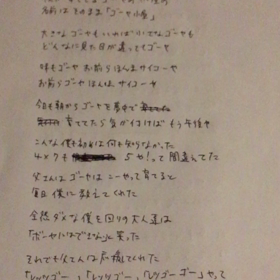 名前はそのまま「ゴーヤ小屋」
大きなゴーヤもいれば小さなゴーヤも
どんなに見た目が違ってもゴーヤ
味もゴーヤ お前らほんまサイコーヤ
お前らゴーヤほんまサイコーヤ
今日も朝からゴーヤを夢中で
育ててたら気が付けばもう午後や
こんな僕も初めは何も知らなかった
4×7も 5や!って間違えてた
父さんはゴーヤはこーやって育てると
毎日僕に教えてくれた
全然ダメな僕を回りの大人達は
「ボーヤにはできまい」と笑った
それでも父さんは応援してくれた
「レッツゴー」「レッツゴー」「レッツゴーゴー」やって